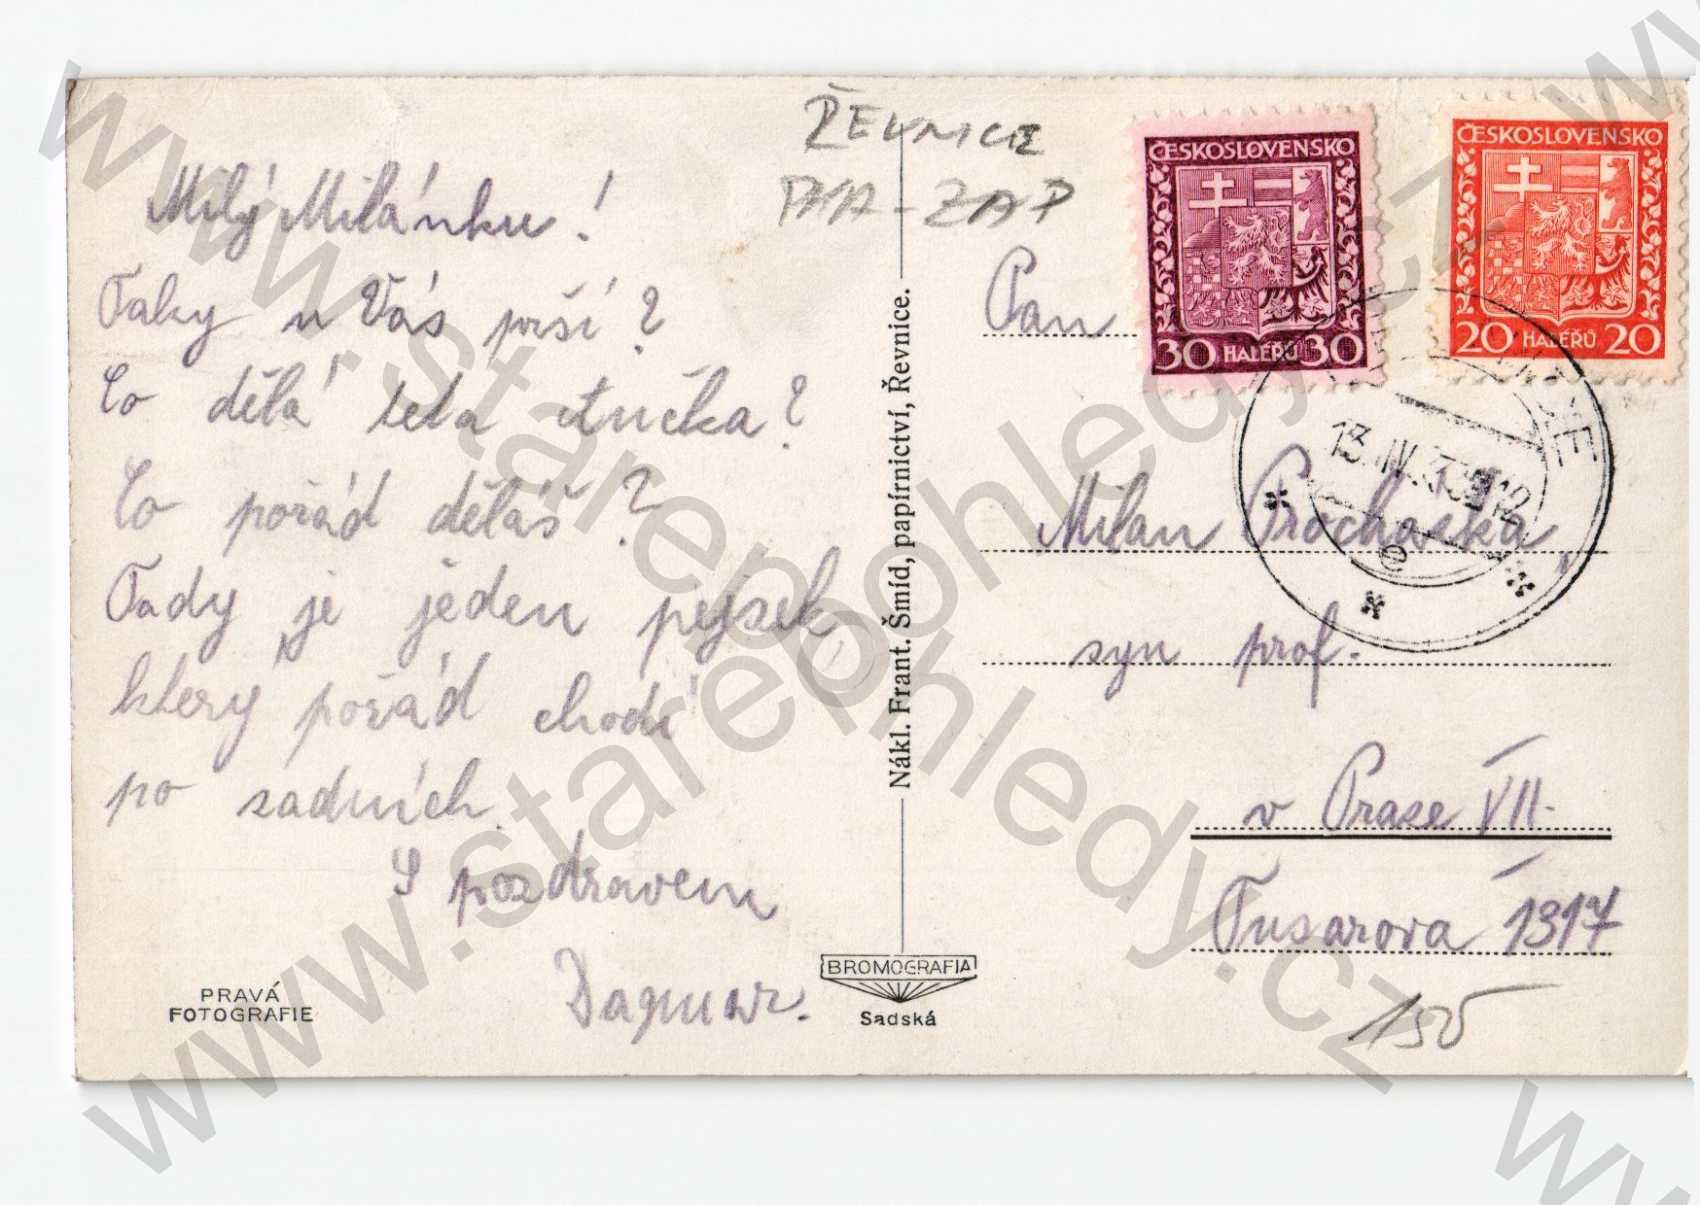 Milý Milánku!
Taky u Vás prší?
Co dělá teta
Co pořád děláš?
Tady je jeden pejsek
který pořád chodí
po zadních.
S pozdravem
Dagmar.
PRAVÁ
FOTOGRAFIE
ŘEVNICE
PHA-ZAP
Nákl. Frant. Šmíd, papírnictví, Řevnice.
BROMOGRAFIA
Sadská
ČESKOSLOVENSKO
30 HALÉŘŮ 30
ČESKOSLOVENSKO
20 HALÉŘŮ 20
13.IV.
e
Pan
Milan Prochaska,
syn prof.
v Praze VII.
Tusarova 1317
155
www.starepohledy.cz
www.starepohledy.cz